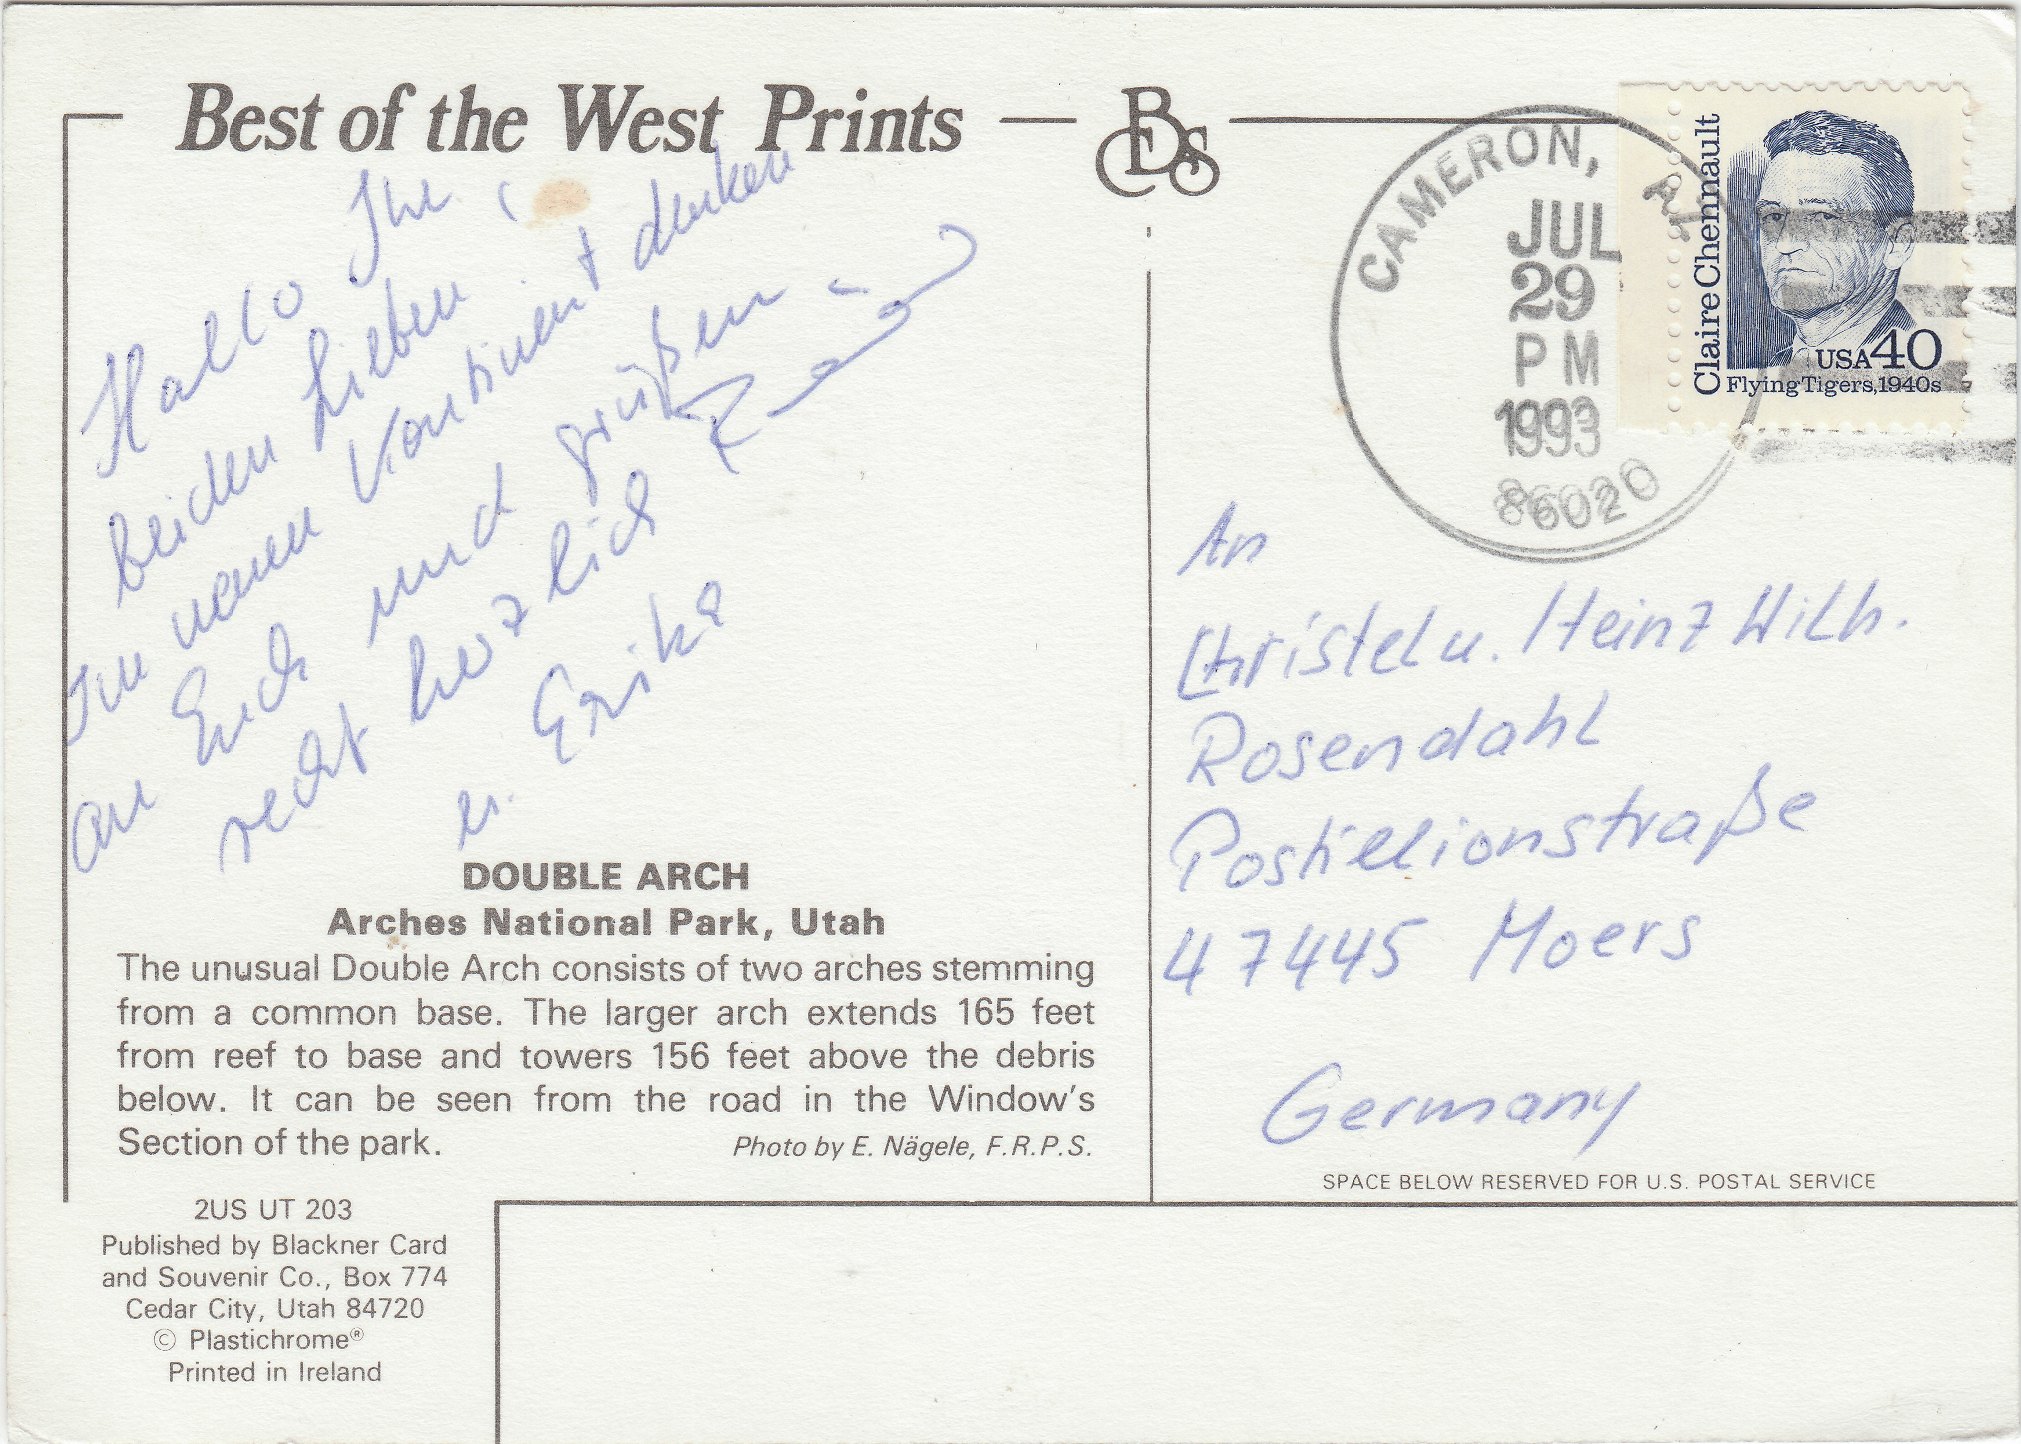 Best of the West Prints
Hallo Ihr
beiden Lieben
Im neuen Kontinent denken
an Euch und grüßen
recht herzlich
u. Erika
DOUBLE ARCH
Arches National Park, Utah
The unusual Double Arch consists of two arches stemming
from a common base. The larger arch extends 165 feet
from reef to base and towers 156 feet above the debris
below. It can be seen from the road in the Window's
Section of the park.
Photo by E. Nägele, F.R.P.S.
2US UT 203
Published by Blackner Card
and Souvenir Co., Box 774
Cedar City, Utah 84720
© Plastichrome®
Printed in Ireland
CAMERON, AZ
JUL
29
PM
1993
86020
Claire Chennault
USA 40
Flying Tigers, 1940s
An
Christel u. Heinz Wilh.
Rosendahl
Postillionstraße
47445 Moers
Germany
SPACE BELOW RESERVED FOR U.S. POSTAL SERVICE